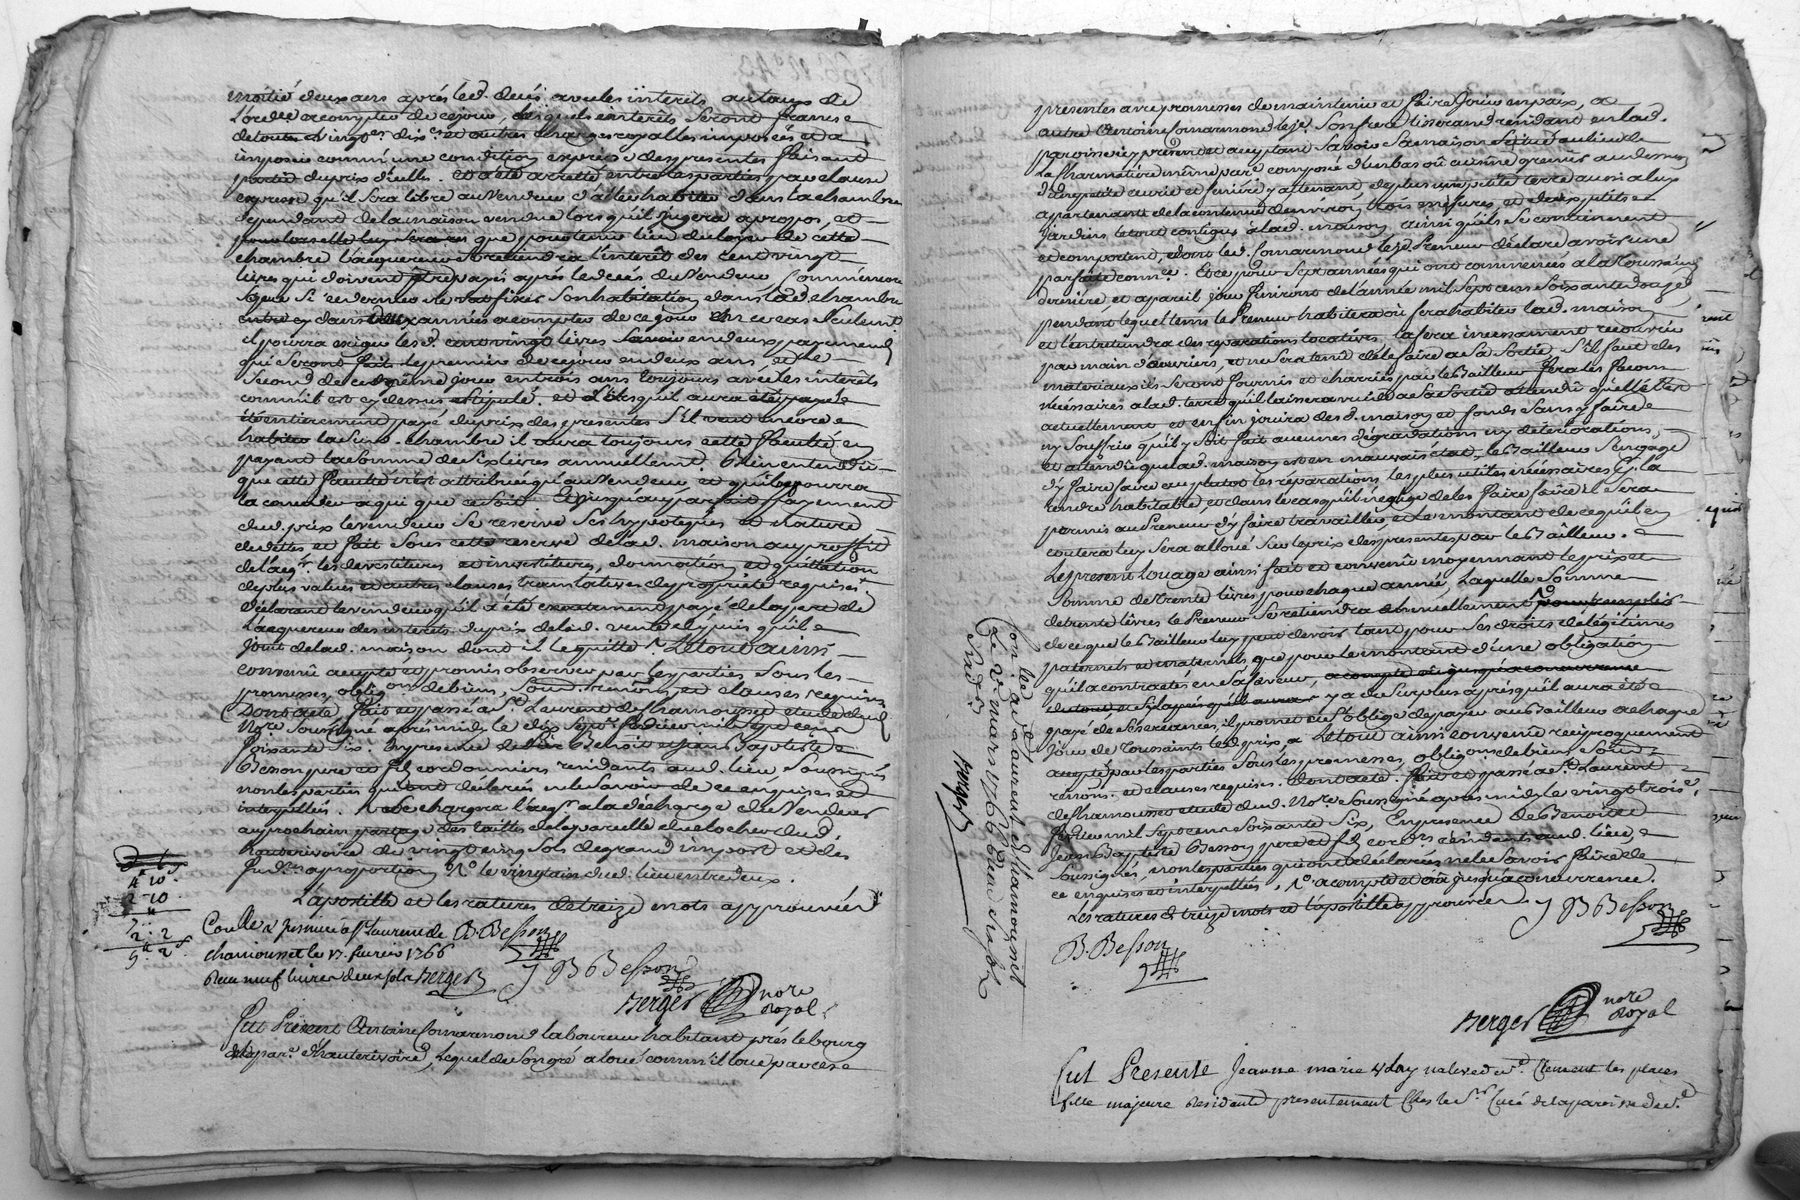 moitié deux ans après led. decès avec les interets au taux de
L'ordce a compter de ce jour, lesquels interets seront francs
de toutes Vingtes dixes et autres charges royalles imposées et a
imposer comm'une condition expresse des presentes faisant
partie du prix d'icelle. Et a été arretté entre les parties par clause
expresse qu'il sera libre au Vendeur d'aller habiter dans la chambre
dependant de la maison vendue lorsqu'il jugera a propos, et
que pour tenir lieu du loyer de cette
chambre l'acquereur retiendra l'interet des cent vingt
livres qui doivent etre payés après le decès du Vendeur
si ce dernier ne va fixer son habitation dans lad. chambre
dans deux années a compter de ce jour En ce cas seulement
il pourra exiger lesd. cent vingt livres Savoir en deux payements
qui seront fait le premier de ce jour en deux ans, et le
Second de ce meme jour en trois ans toujours avec les interets
comm'il est cy dessus stipulé. et Lorsqu'il aura
été entierement payé du prix des presentes s'il veut encore
habiter lad. chambre il aura toujours cette faculté en
payant la somme de six livres annuellement. Bien entendu
que cette faculté n'est attribuée qu'au Vendeur et qu'il ne pourra
la ceder a qui que ce soit Et jusqu'au parfait payement
dud. prix le vendeur se reserve ses hypoteques et nature
de dettes et fait sous cette reserve de lad. maison au proffit
de l'acqr. les devestitures et investitures, donnation et quittation
de plus values et autres clauses translatives de proprieté requises.
Déclarant le vendeur qu'il a été exactement payé de la part de
L'acquereur des interets du prix de lad. vente depuis qu'il
jouit de lad. maison dont il le quitte Le tout ainsi
convenu accepté et promis observer par les parties sous les
promesses, obligon de biens, soumd. renons et clauses requises
Dont acte fait et passé a St. Laurent de Chamousset etude dud.
Nore soussigné après midi le dix sept fevrier mil sept cens
soixante six. En presence de Benoit et Jean Baptiste
Besson pere et fils cordonniers residants aud. lieu soussignés
non les parties qui ont déclaré ne le savoir de ce enquises et
interpellés. se chargera l'acqr. a la décharge du Vendeur
au prochain partage des tailles de la parcelle du clocher dud.
hauterivoire de vingt cinq sols de grand import et des
a proportion le vingtain dud. lieu entre deux.
L'apostille et les ratures de treize mots approuvées
4 10
2 10
2 2
9 2
Conllé a St Laurent de
chamousset le 17. fevrier 1766
Reçu neuf livres deux sols Berger
B. Besson
J B Besson
Berger nore
Royal
Fut Present Antoine Comarmond laboureur habitant près le bourg
de la par. d'hauterivoire, Lequel de son gré a loué comm'il loue par ces
presentes avec promesses de maintenir et faire jouir en paix, a
autre Antoine Comarmond le jne. Son frere tisserand residant en lad.
paroisse icy present et acceptant Savoir Sa maison Située au lieu de
La Charnatiere même pare. composée d'un bas ou cuisine grenier au dessus
d'une petite ecurie et feniere y attenant de plus une petite terre aussi a luy
appartenante de la contenue d'environ trois mesures et deux petits
jardins le tout contigus a lad. maison ainsi qu'ils se contiennent
et comportent, et dont led. Comarmond le jne. Preneur déclare avoir une
parfaite connce. Et ce pour Sept années qui ont commencés a la Toussaint
derniere et a pareil jour finiront de l'année mil Sept cens Soixante douze
pendant lequel tems le Preneur habitera ou fera habiter lad. maison
et l'entretiendra des reparations locatives. la fera incessament recouvrir
par main d'ouvriers, et ne sera tenu de le faire a sa Sortie, S'il faut des
materiaux ils Seront fournis et charriés par le Bailleur fera les façons
necessaires a lad. terre qu'il laissera vuide a sa Sortie attendu qu'elle l'est
actuellement et enfin jouira desd. maison et fonds Sans y faire
ny Souffrir qu'il y soit fait aucunes dégradations ny deteriorations,
et attendu que lad. maison est en mauvais etat, le Bailleur s'engage
d'y faire faire au plutot les réparations les plus utiles et necessaires pr. la
rendre habitable, et dans le cas qu'il néglige de les faire faire il Sera
permis au Preneur d'y faire travailler et le montant de ce qu'il en
coutera luy Sera alloué Sur le prix des presentes par le Bailleur.
Le present louage ainsi fait et convenu moyennant le prix et
Somme de trente livres pour chaque année, Laquelle Somme
de trente livres le Preneur Se retiendra annuellement
de ce que le Bailleur luy peut devoir tant pour Ses droits de légitimes
paternels et maternels, que pour le montant d'une obligation
qu'il a contractés en sa faveur, a compte ou jusqu'a concurrence
y a du Surplus après qu'il aura été
payé de Ses creances, il promet et S'oblige de payer au Bailleur a chaque
jour de Toussaints led. prix, Le tout ainsi convenu réciproquement
accepté par les parties Sous les promesses, obligons. de biens Soumd.
renons. et clauses requises. Dont acte. fait et passé a St. Laurent
de Chamousset etude dud. Nore Soussigné après midy le vingt trois
fevrier mil Sept cens Soixante Six, En presence de Benoit et
Jean Baptiste Besson pere et fils cordrs. residants aud. lieu,
Soussignés, non les parties qui ont déclarées ne le Savoir faire de
ce enquises et interpellés, a compte et ou jusqu'a concurrence.
Les ratures de treize mots et l'apostille approuvées
J B Besson
B. Besson
Berger nore
Royal
Conllé a St Laurent de Chamousset
Le 2e. mars 1766
Berger
Fut Presente Jeanne marie native de Clement les places
fille majeure Residante presentement Ches le Sr. Curé de la paroisse de